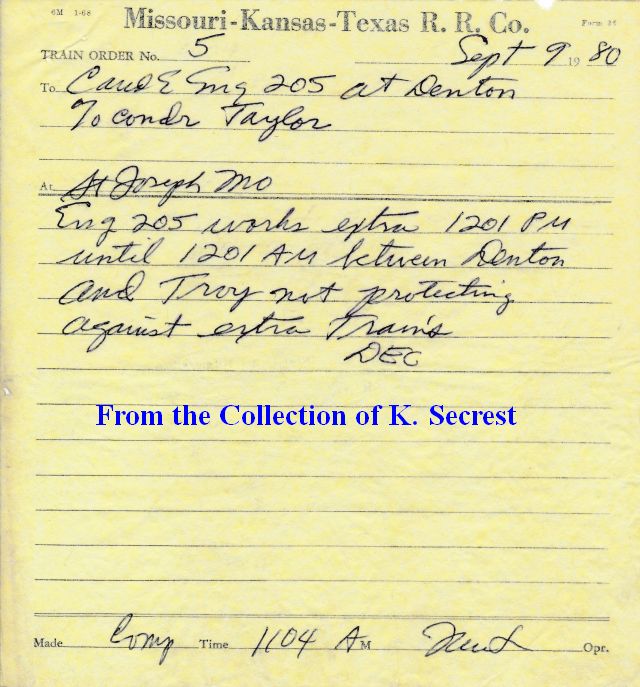 6M 1-68 Missouri-Kansas-Texas R. R. Co. Form
TRAIN ORDER No. 5 Sept 9 1980
To C and E Eng 205 at Denton
To condr Taylor
At St Joseph Mo
Eng 205 works extra 1201 PM
until 1201 AM between Denton
and Troy not protecting
against extra Trains
DEC
From the Collection of K. Secrest
Made Comp Time 1104 A M Opr.